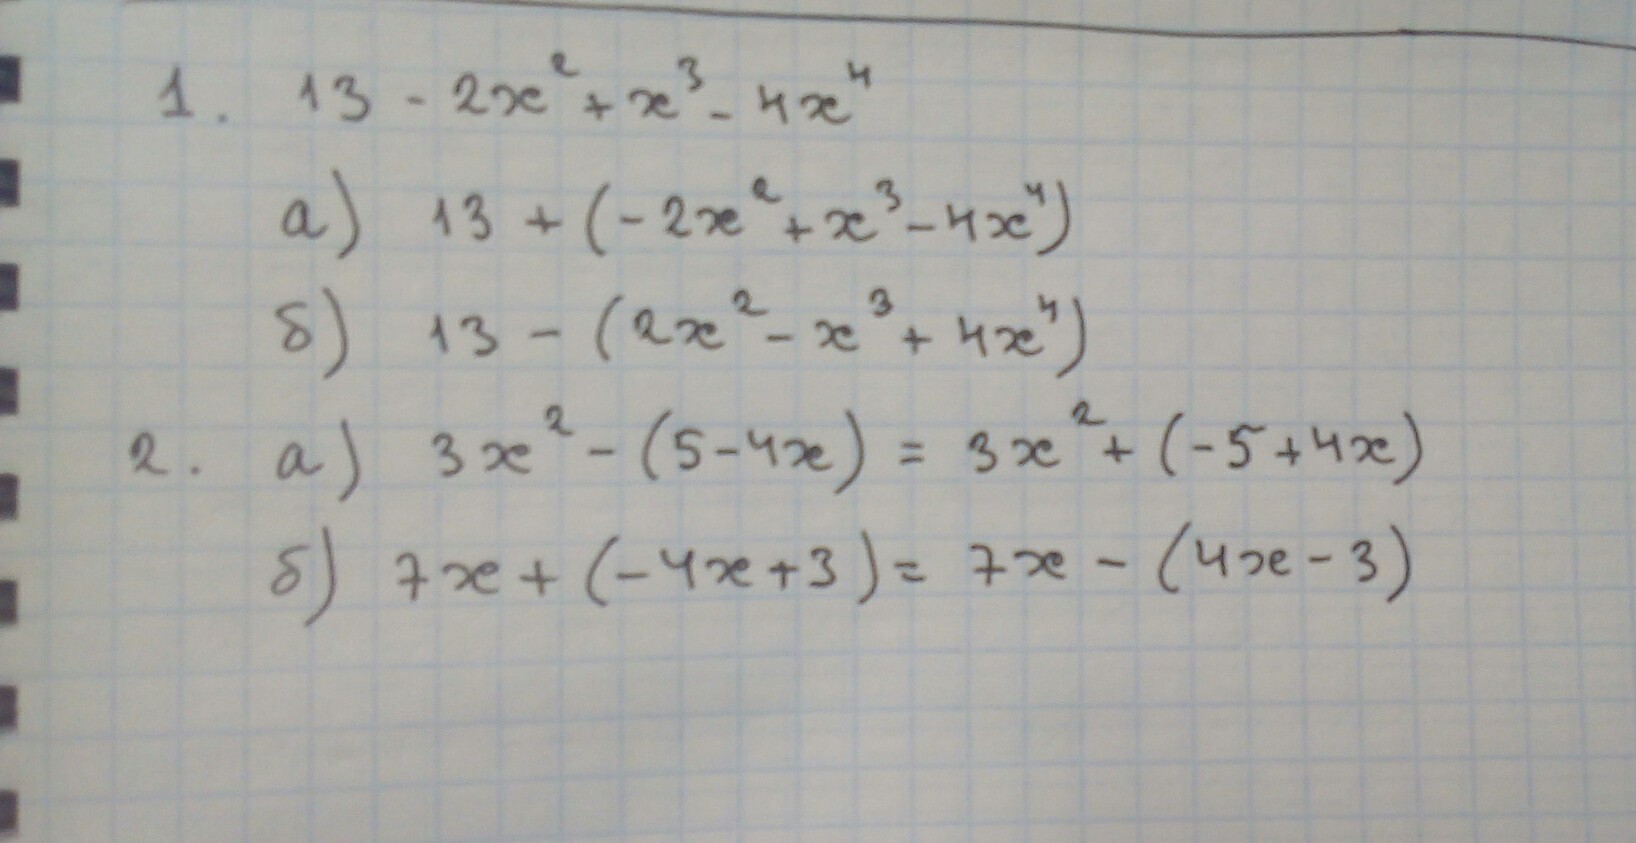 1. 13 - 2x² + x³ - 4x⁴
а) 13 + (-2x² + x³ - 4x⁴)
б) 13 - (2x² - x³ + 4x⁴)
2. а) 3x² - (5 - 4x) = 3x² + (-5 + 4x)
б) 7x + (-4x + 3) = 7x - (4x - 3)